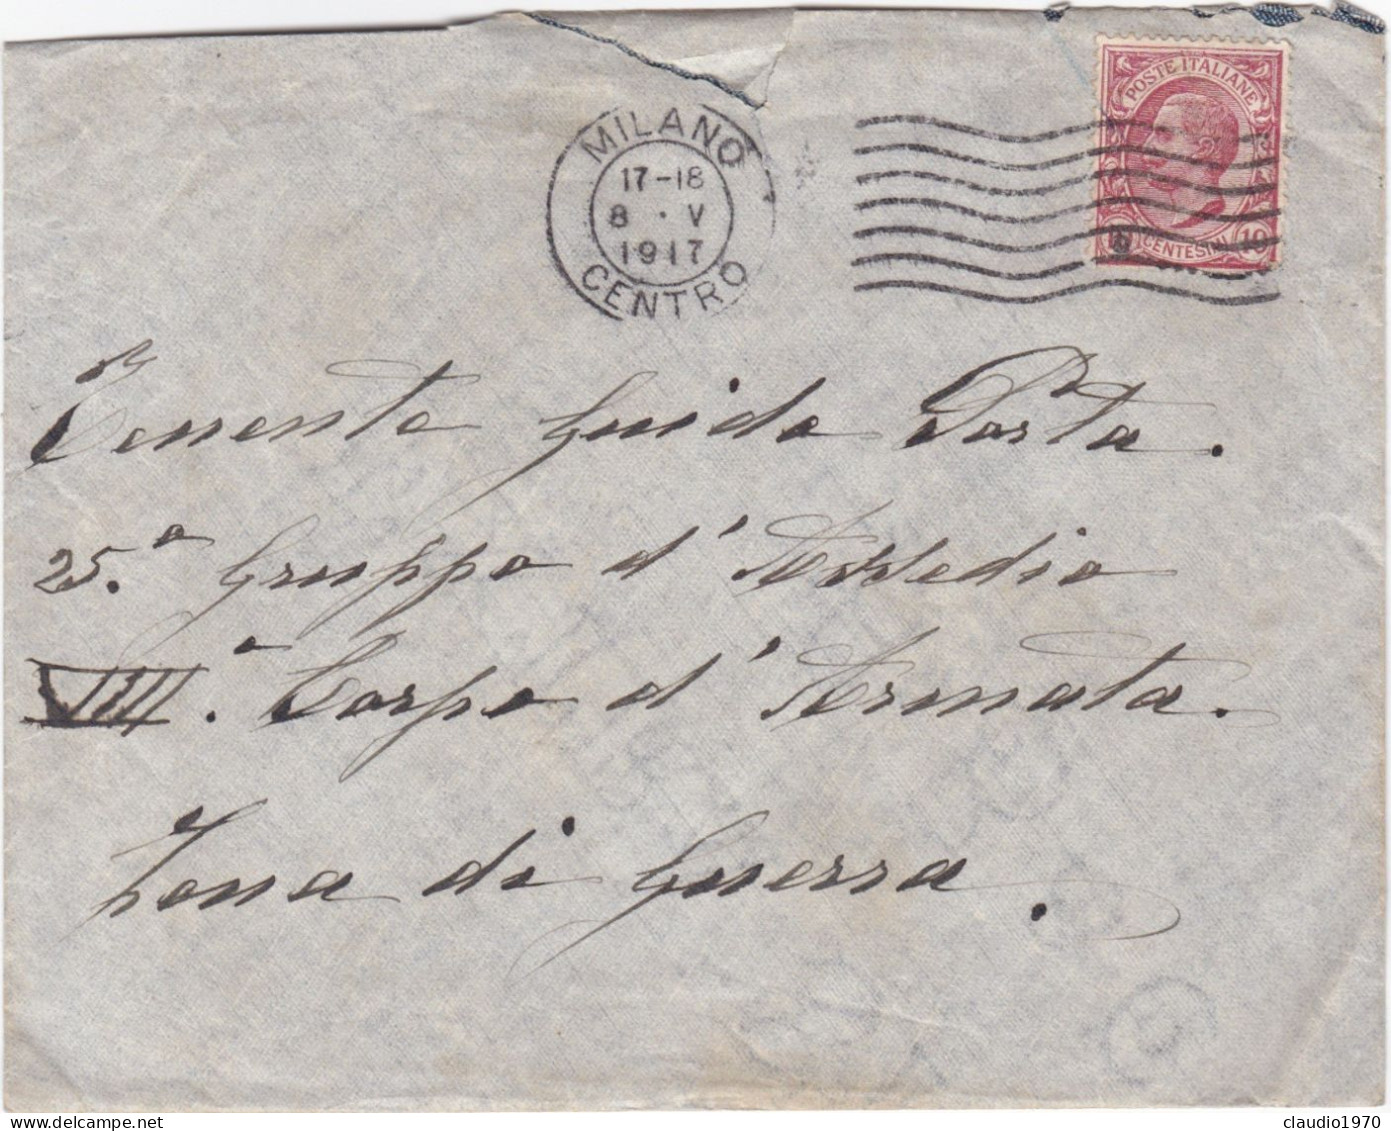 MILANO
17-18
8 · V
1917
CENTRO
POSTE ITALIANE
CENTESINI 10
Tenente Guido Porta.
25.° Gruppo d'Assedio
VIII.° Corpo d'Armata.
Zona di Guerra.
claudio1970